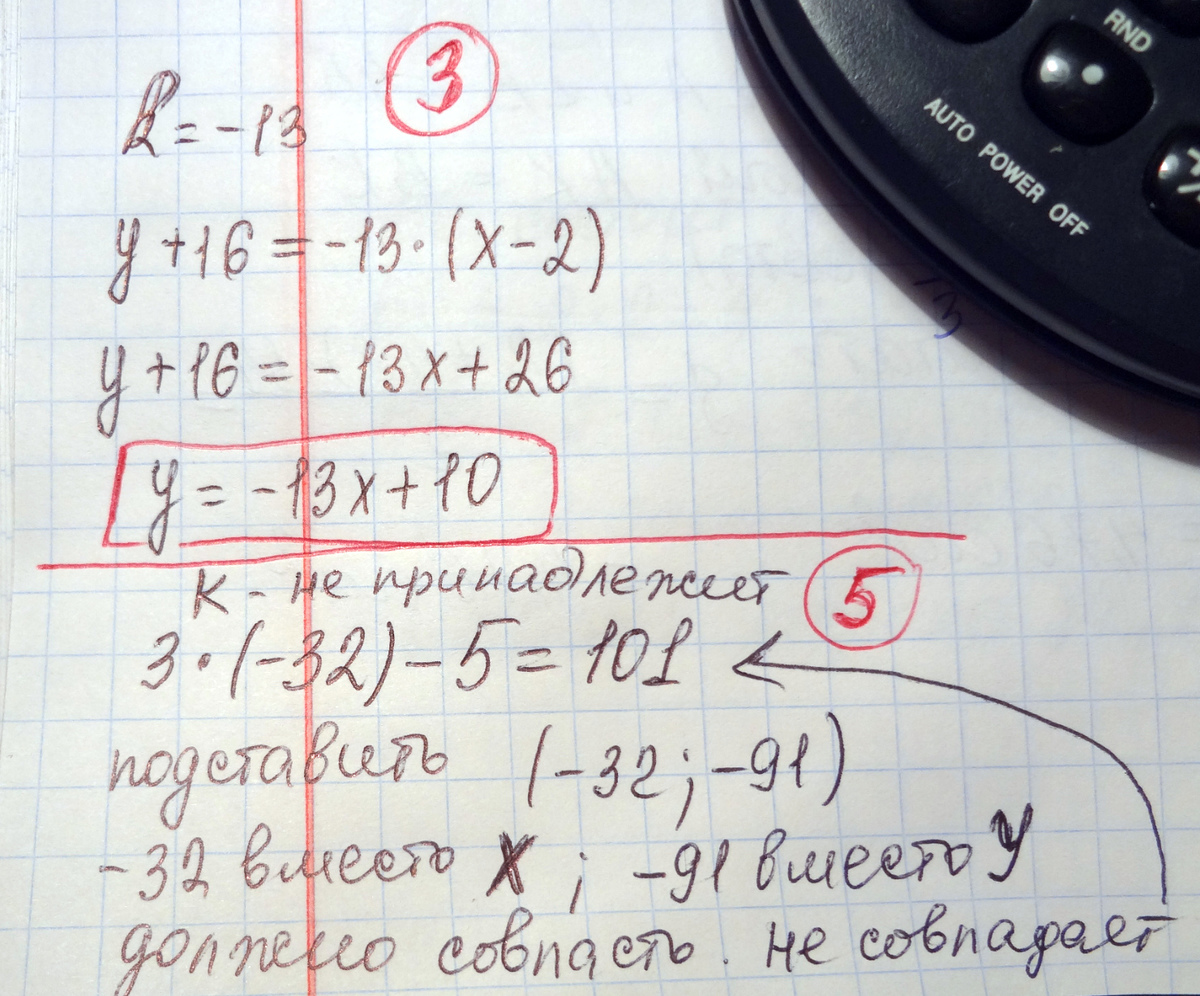 3
k = -13
y + 16 = -13 · (x - 2)
y + 16 = -13x + 26
y = -13x + 10
5
K - не принадлежит
3 · (-32) - 5 = 101
подставить (-32; -91)
-32 вместо X ; -91 вместо y
должно совпасть. не совпадает
RND
AUTO POWER OFF